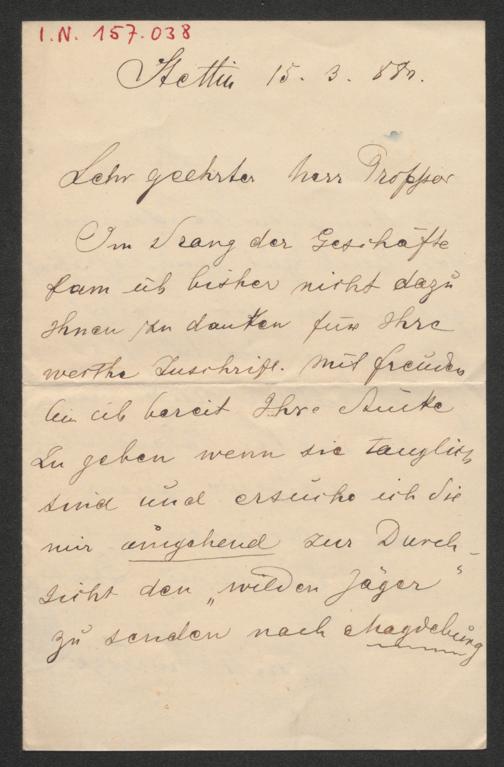 I.N. 157.038
Stettin 15. 3. 887.
Sehr geehrter Herr Professor
Im Drang der Geschäfte
kam ich bisher nicht dazu
Ihnen zu danken für Ihre
werthe Zuschrift. Mit freuden
bin ich bereit Ihre Stücke
zu geben wenn sie tauglich
sind und ersuche ich Sie
mir umgehend zur Durch-
sicht den „wilden Jäger“
zu senden nach Magdeburg